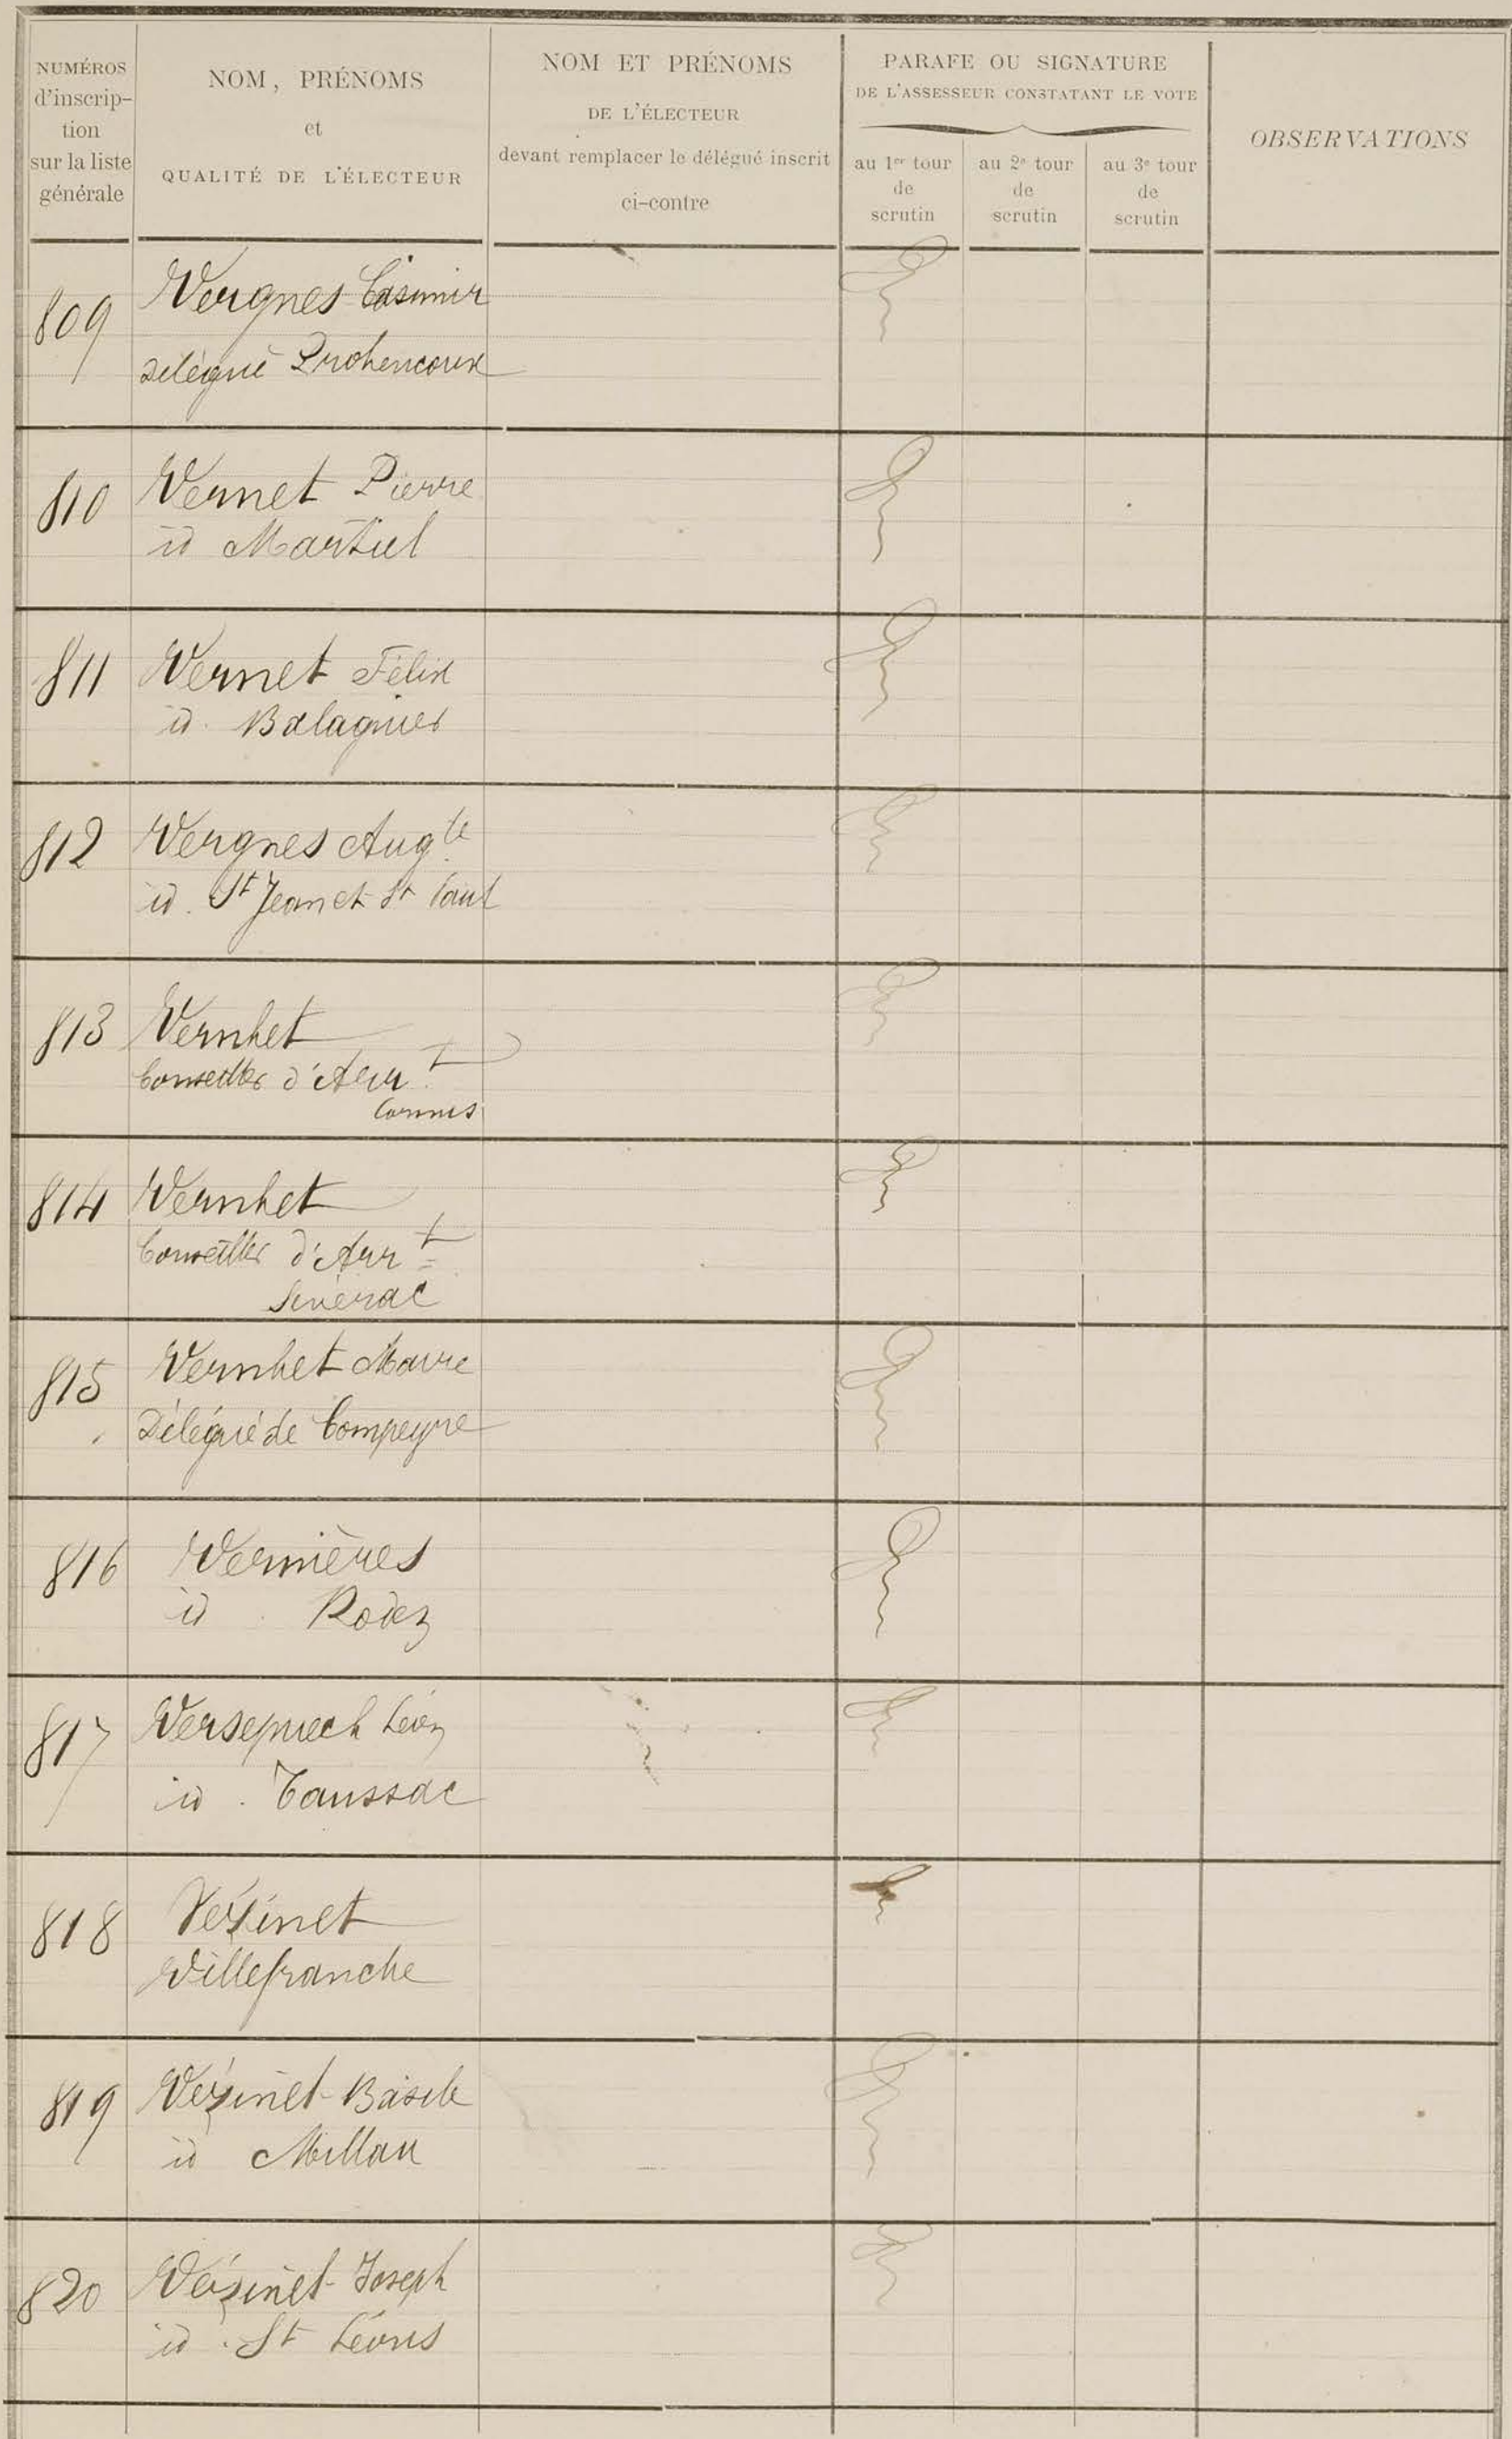 NUMÉROS
d'inscrip-
tion
sur la liste
générale
NOM, PRÉNOMS
et
QUALITÉ DE L'ÉLECTEUR
NOM ET PRÉNOMS
DE L'ÉLECTEUR
devant remplacer le délégué inscrit
ci-contre
PARAFE OU SIGNATURE
DE L'ASSESSEUR CONSTATANT LE VOTE
au 1er tour
de
scrutin
au 2e tour
de
scrutin
au 3e tour
de
scrutin
OBSERVATIONS
809 Vergnes Casimir
Délégué Prohencoux
810 Vernet Pierre
id Martiel
811 Vernet Félix
id. Balaguier
812 Vergnes Augte
id. St Jean et St Paul
813 Vernhet
Conseiller d'Arrt
Cornus
814 Vernhet
Conseiller d'Arrt
Séverac
815 Vernhet Maire
Délégué de Compeyre
816 Vernières
id. Rodez
817 Versepuech Léon
id. Taussac
818 Vézinet
Villefranche
819 Vézinet Basile
id Millau
820 Vézinet Joseph
id. St Léons